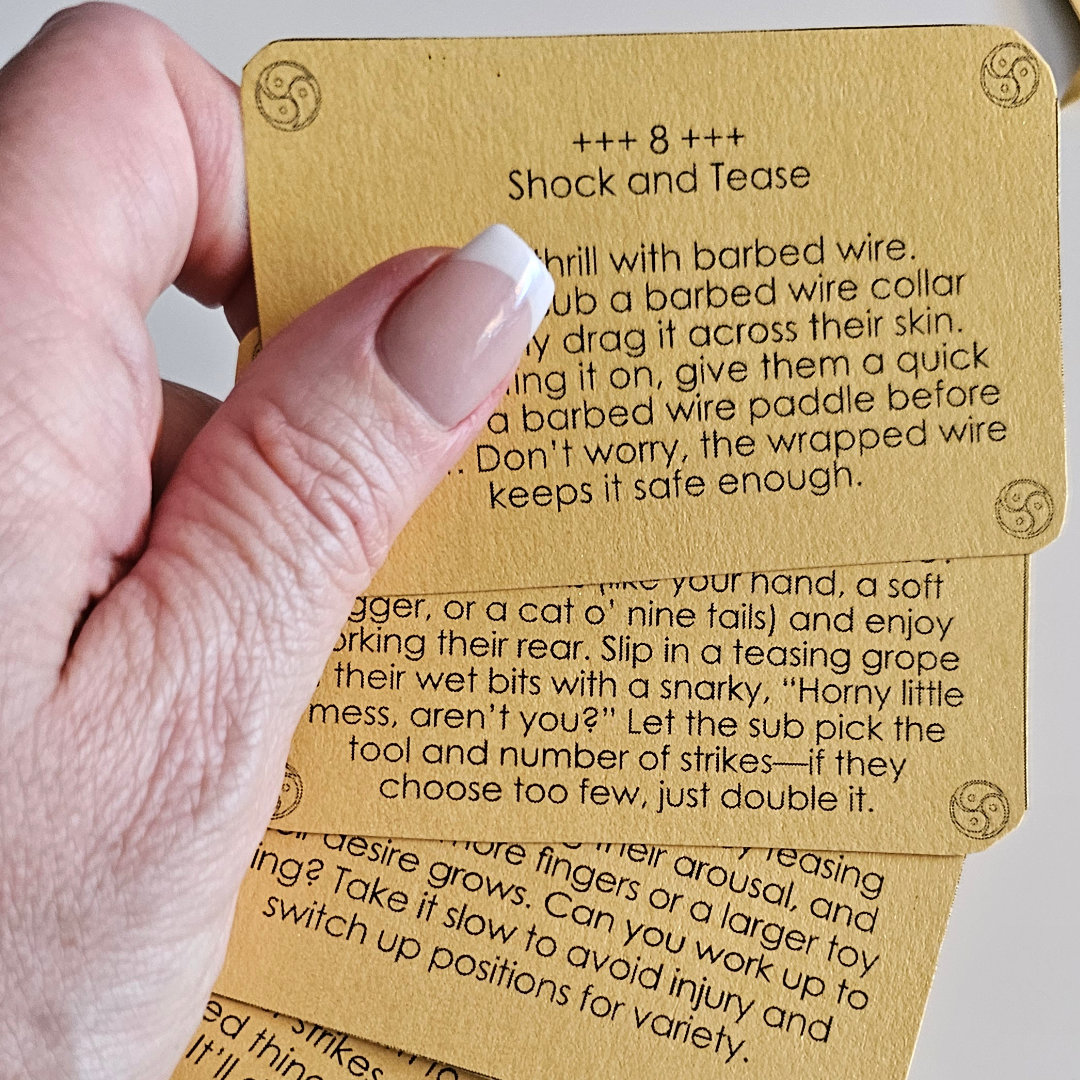 +++ 8 +++
Shock and Tease
thrill with barbed wire.
a barbed wire collar
drag it across their skin.
it on, give them a quick
a barbed wire paddle before
Don't worry, the wrapped wire
keeps it safe enough.
your hand, a soft
or a cat o' nine tails) and enjoy
their rear. Slip in a teasing grope
their wet bits with a snarky, “Horny little
mess, aren't you?” Let the sub pick the
tool and number of strikes—if they
choose too few, just double it.
teasing
their arousal, and
desire grows. more fingers or a larger toy
Take it slow to avoid injury and
Can you work up to
switch up positions for variety.
strikes
thing
It'll